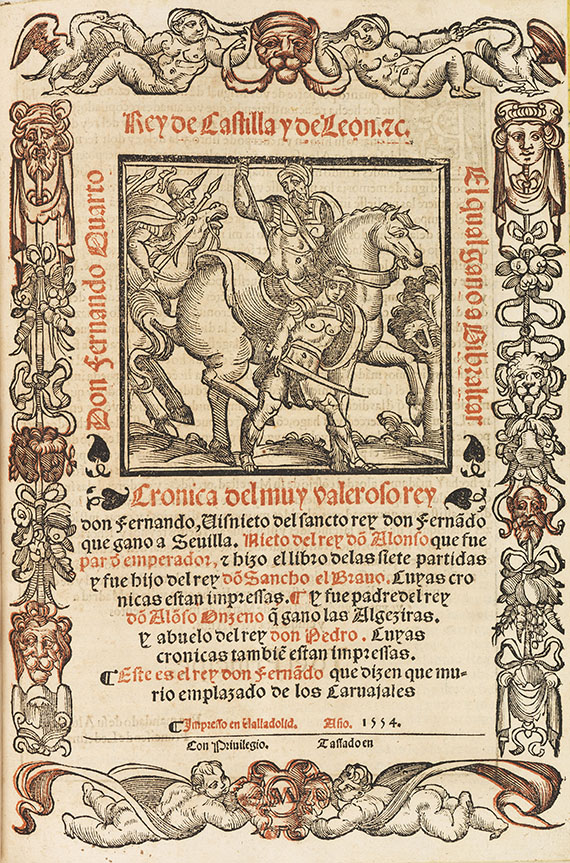 Rey de Castilla y de Leon. ⁊c.
Don Fernando Quarto
El qual gano a Gibraltar
Cronica del muy valeroso rey
don Fernando, Visnieto del sancto rey don Fernãdo
que gano a Seuilla. Nieto del rey dõ Alonso que fue
par đ emperador, ⁊ hizo el libro delas siete partidas
y fue hijo del rey dõ Sancho el Brauo. Cuyas cro
nicas estan impressas. ¶ Y fue padre del rey
dõ Alõso Onzeno q̃ gano las Algeziras.
Y abuelo del rey don Pedro. Cuyas
cronicas tambiẽ estan impressas.
¶ Este es el rey don Fernãdo que dizen que mu-
rio emplazado de los Caruajales
¶ Impresso en Valladolid. Año. 1554.
Con Priuilegio. Tassado en
M